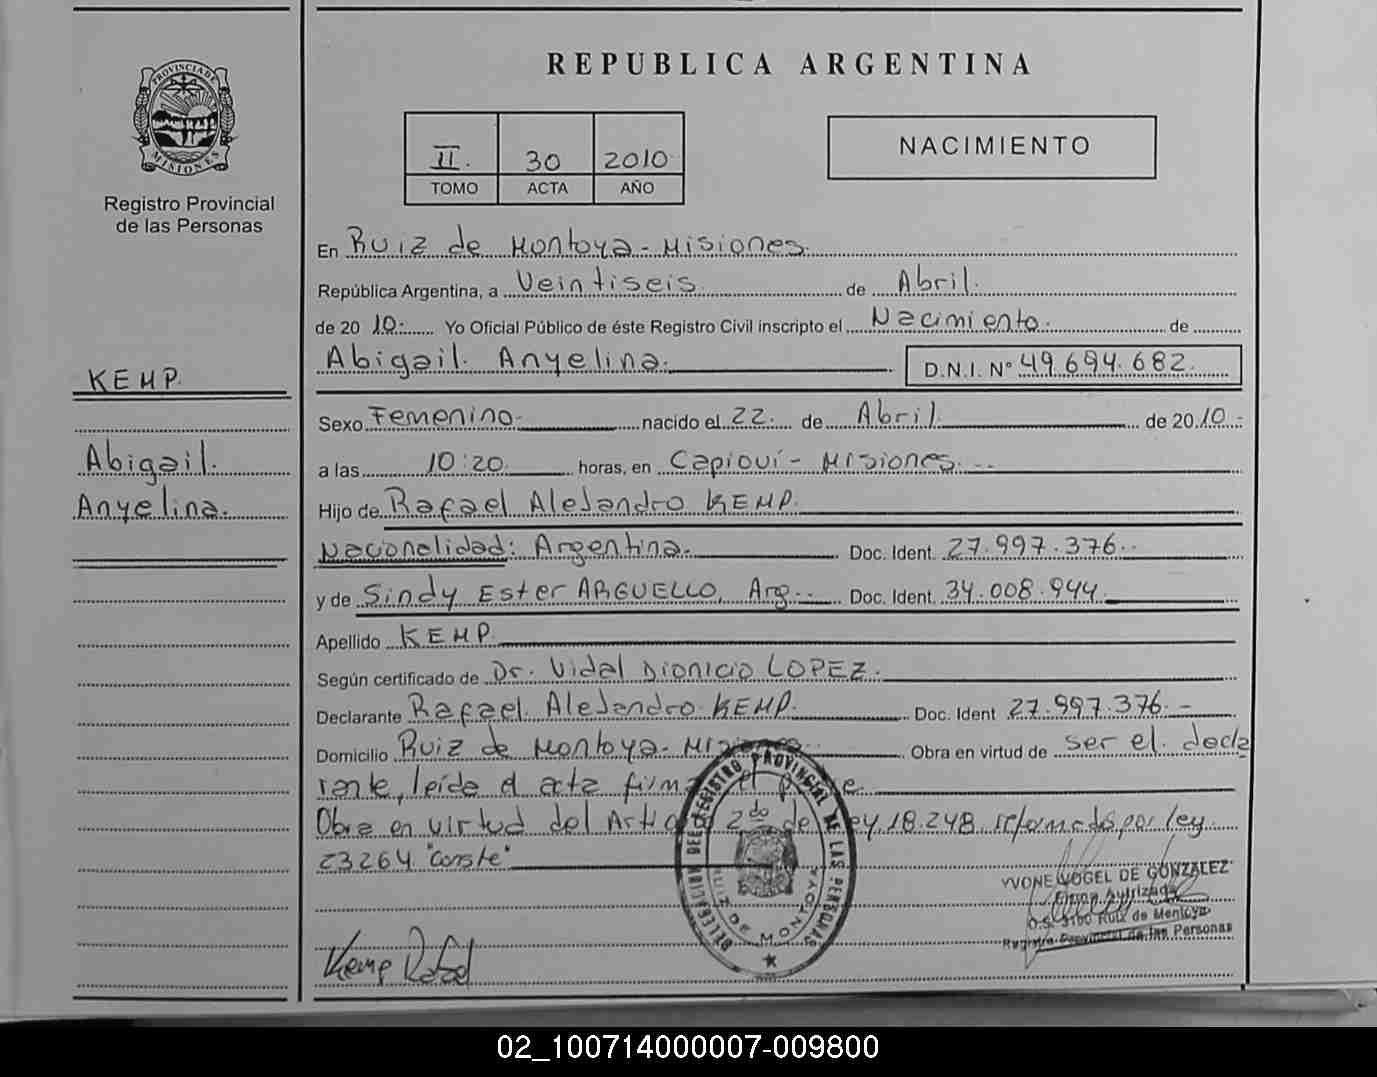 REPUBLICA ARGENTINA
PROVINCIA DE
MISIONES
Registro Provincial
de las Personas
II. 30 2010
TOMO ACTA AÑO
NACIMIENTO
KEMP.
Abigail.
Anyelina.
En Ruiz de Montoya - Misiones.
República Argentina, a Veintiseis de Abril.
de 20 10.- Yo Oficial Público de éste Registro Civil inscripto el Nacimiento. de
Abigail. Anyelina. D.N.I. N° 49.694.682.
Sexo Femenino. nacido el 22. de Abril. de 20 10.-
a las 10:20 horas, en Capioví - Misiones.--
Hijo de Rafael Alejandro KEMP.
Nacionalidad: Argentina. Doc. Ident. 27.997.376.-
y de Sindy Ester ARGUELLO, Arg.. Doc. Ident. 34.008.944
Apellido KEMP.
Según certificado de Dr. Vidal Dionicio LOPEZ.
Declarante Rafael Alejandro KEMP. Doc. Ident 27.997.376.-
Domicilio Ruiz de Montoya - Misiones.. Obra en virtud de ser el decla
rante, leída el acta firma el
Obra en virtud del 2do de ley 18.248 reformado por ley
23264 "conste"
DELEGACION DEL REGISTRO PROVINCIAL DE LAS PERSONAS
RUIZ DE MONTOYA
YVONE VOGEL DE GONZALEZ
Firma Autorizada
O.S. 3100 Ruiz de Montoya
Registro Provincial de las Personas
Kemp Rafael
02_100714000007-009800